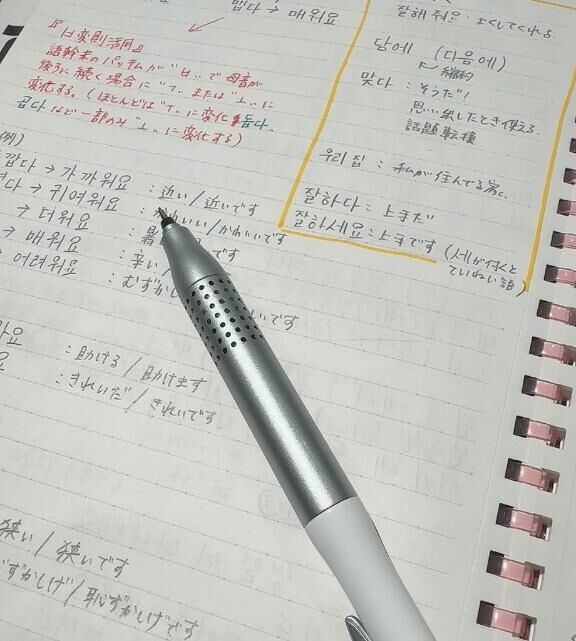 맵다 → 매워요
『ㅂ変則活用』
語幹末のパッチムが"ㅂ"で母音が
後ろに続く場合に"ㅜ"または"ㅗ"に
変化する。(ほとんどは"ㅜ"に変化 돕다、
곱다など一部のみ"ㅗ"に変化する)
(例)
깝다 → 가까워요 : 近い/近いです
→ 귀여워요 : かわいい/かわいいです
→ 더워요 : 暑 です
→ 매워요 : 辛い/
→ 어려워요 : むずかし いです
와요 : 助ける/助けます
요 : きれいだ/きれいです
狭い/狭いです
ずかしげ/恥ずかしげです
잘해 줘요 : よくしてくれる。
담에 (다음에)
縮約
맞다 : そうだ!
思い出したとき使える。
話題転換
우리 집 : 私が住んでる家。
잘하다 : 上手だ
잘하세요 : 上手です (세が付くと
ていねい語)